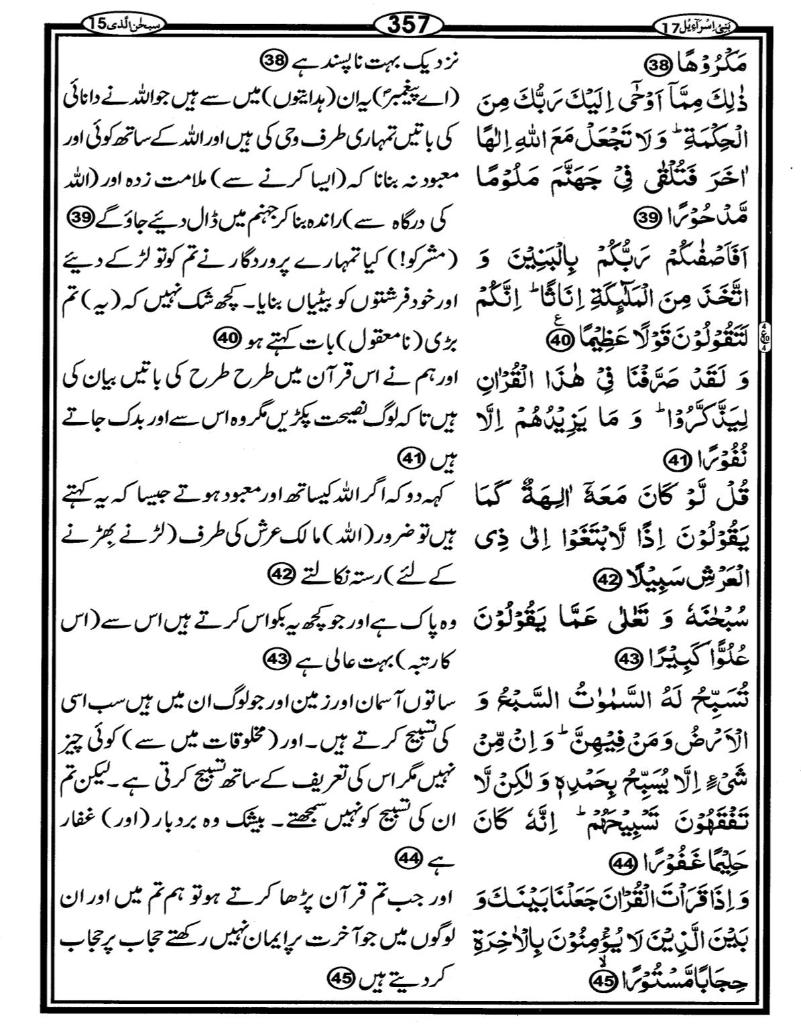 بَنِیْۤ اِسْرَآءِیْل 17
357
سبحٰن الذی 15
مَكْرُوْهًا 38
ذٰلِكَ مِمَّاۤ اَوْحٰۤى اِلَیْكَ رَبُّكَ مِنَ
الْحِكْمَةِ ؕ وَ لَا تَجْعَلْ مَعَ اللّٰهِ اِلٰهًا
اٰخَرَ فَتُلْقٰى فِیْ جَهَنَّمَ مَلُوْمًا
مَّدْحُوْرًا 39
اَفَاَصْفٰىكُمْ رَبُّكُمْ بِالْبَنِیْنَ وَ
اتَّخَذَ مِنَ الْمَلٰٓىِٕكَةِ اِنَاثًا ؕ اِنَّكُمْ
لَتَقُوْلُوْنَ قَوْلًا عَظِیْمًا 40
وَ لَقَدْ صَرَّفْنَا فِیْ هٰذَا الْقُرْاٰنِ
لِیَذَّكَّرُوْا ؕ وَ مَا یَزِیْدُهُمْ اِلَّا
نُفُوْرًا 41
قُلْ لَّوْ كَانَ مَعَهٗۤ اٰلِهَةٌ كَمَا
یَقُوْلُوْنَ اِذًا لَّابْتَغَوْا اِلٰى ذِی
الْعَرْشِ سَبِیْلًا 42
سُبْحٰنَهٗ وَ تَعٰلٰى عَمَّا یَقُوْلُوْنَ
عُلُوًّا كَبِیْرًا 43
تُسَبِّحُ لَهُ السَّمٰوٰتُ السَّبْعُ وَ
الْاَرْضُ وَ مَنْ فِیْهِنَّ ؕ وَ اِنْ مِّنْ
شَیْءٍ اِلَّا یُسَبِّحُ بِحَمْدِهٖ وَ لٰكِنْ لَّا
تَفْقَهُوْنَ تَسْبِیْحَهُمْ ؕ اِنَّهٗ كَانَ
حَلِیْمًا غَفُوْرًا 44
وَ اِذَا قَرَاْتَ الْقُرْاٰنَ جَعَلْنَا بَیْنَكَ وَ
بَیْنَ الَّذِیْنَ لَا یُؤْمِنُوْنَ بِالْاٰخِرَةِ
حِجَابًا مَّسْتُوْرًا 45
نزدیک بہت ناپسند ہے 38
(اے پیغمبرؐ) یہ ان (ہدایتوں) میں سے ہیں جو اللہ نے دانائی
کی باتیں تمہاری طرف وحی کی ہیں اور اللہ کے ساتھ کوئی اور
معبود نہ بنانا کہ (ایسا کرنے سے) ملامت زدہ اور (اللہ
کی درگاہ سے) راندہ بنا کر جہنم میں ڈال دیئے جاؤ گے 39
(مشرکو!) کیا تمہارے پروردگار نے تم کو تو لڑکے دیئے
اور خود فرشتوں کو بیٹیاں بنایا۔ کچھ شک نہیں کہ (یہ) تم
بڑی (نامعقول) بات کہتے ہو 40
اور ہم نے اس قرآن میں طرح طرح کی باتیں بیان کی
ہیں تاکہ لوگ نصیحت پکڑیں مگر وہ اس سے اور بدک جاتے
ہیں 41
کہہ دو کہ اگر اللہ کیساتھ اور معبود ہوتے جیسا کہ یہ کہتے
ہیں تو ضرور (اللہ) مالک عرش کی طرف (لڑنے بِھڑنے
کے لئے) رستہ نکالتے 42
وہ پاک ہے اور جو کچھ یہ بکواس کرتے ہیں اس سے (اس
کا رتبہ) بہت عالی ہے 43
ساتوں آسمان اور زمین اور جو لوگ ان میں ہیں سب اسی
کی تسبیح کرتے ہیں۔ اور (مخلوقات میں سے) کوئی چیز
نہیں مگر اس کی تعریف کے ساتھ تسبیح کرتی ہے۔ لیکن تم
ان کی تسبیح کو نہیں سمجھتے۔ بیشک وہ بردبار (اور) غفار
ہے 44
اور جب تم قرآن پڑھا کرتے ہو تو ہم تم میں اور ان
لوگوں میں جو آخرت پر ایمان نہیں رکھتے حجاب پر حجاب
کر دیتے ہیں 45